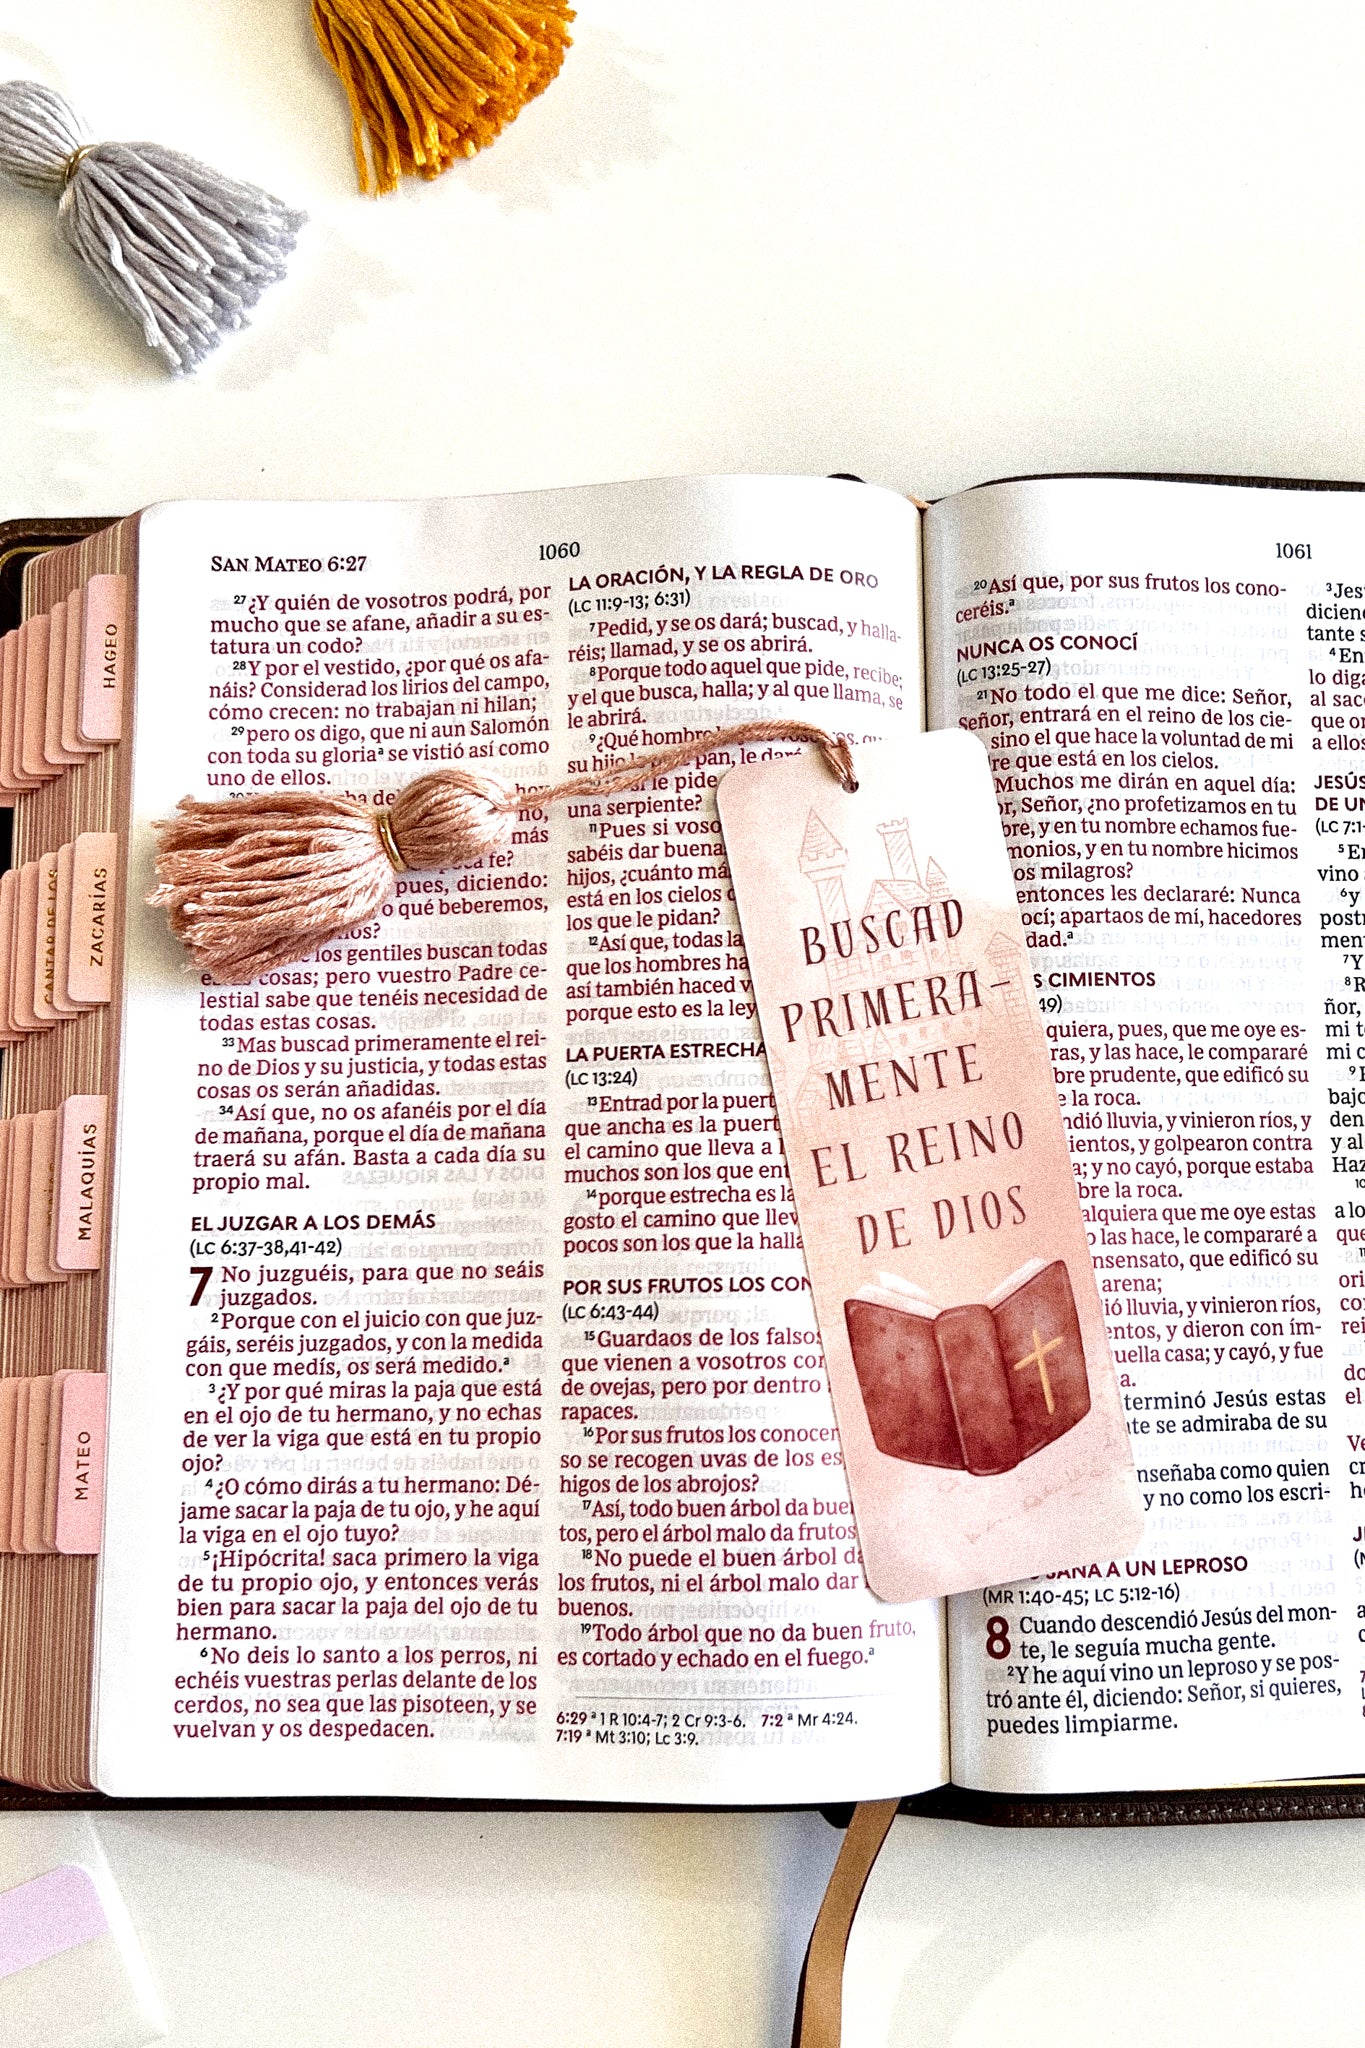 HAGEO
ZACARÍAS
CANTAR DE LOS
MALAQUÍAS
MATEO
SAN MATEO 6:27
1060
27¿Y quién de vosotros podrá, por
mucho que se afane, añadir a su es-
tatura un codo?
28Y por el vestido, ¿por qué os afa-
náis? Considerad los lirios del campo,
cómo crecen: no trabajan ni hilan;
29pero os digo, que ni aun Salomón
con toda su gloriaª se vistió así como
uno de ellos.
hoy
no,
más
fe?
pues, diciendo:
o qué beberemos,
los gentiles buscan todas
cosas; pero vuestro Padre ce-
lestial sabe que tenéis necesidad de
todas estas cosas.
33Mas buscad primeramente el rei-
no de Dios y su justicia, y todas estas
cosas os serán añadidas.
34Así que, no os afanéis por el día
de mañana, porque el día de mañana
traerá su afán. Basta a cada día su
propio mal.
EL JUZGAR A LOS DEMÁS
(LC 6:37-38,41-42)
7 No juzguéis, para que no seáis
juzgados.
2Porque con el juicio con que juz-
gáis, seréis juzgados, y con la medida
con que medís, os será medido.ª
3¿Y por qué miras la paja que está
en el ojo de tu hermano, y no echas
de ver la viga que está en tu propio
ojo?
4¿O cómo dirás a tu hermano: Dé-
jame sacar la paja de tu ojo, y he aquí
la viga en el ojo tuyo?
5¡Hipócrita! saca primero la viga
de tu propio ojo, y entonces verás
bien para sacar la paja del ojo de tu
hermano.
6No deis lo santo a los perros, ni
echéis vuestras perlas delante de los
cerdos, no sea que las pisoteen, y se
vuelvan y os despedacen.
LA ORACIÓN, Y LA REGLA DE ORO
(LC 11:9-13; 6:31)
7Pedid, y se os dará; buscad, y halla-
réis; llamad, y se os abrirá.
8Porque todo aquel que pide, recibe;
y el que busca, halla; y al que llama, se
le abrirá.
9¿Qué hombre
su hijo le pide pan, le dará
le pide
una serpiente?
11Pues si voso
sabéis dar buena
hijos, ¿cuánto má
está en los cielos
los que le pidan?
12Así que, todas la
que los hombres ha
así también haced v
porque esto es la ley
LA PUERTA ESTRECHA
(LC 13:24)
13Entrad por la puert
que ancha es la puert
el camino que lleva a
muchos son los que ent
14porque estrecha es la
gosto el camino que llev
pocos son los que la halla
POR SUS FRUTOS LOS CON
(LC 6:43-44)
15Guardaos de los falsos
que vienen a vosotros con
de ovejas, pero por dentro
rapaces.
16Por sus frutos los conocer
so se recogen uvas de los es
higos de los abrojos?
17Así, todo buen árbol da bue
tos, pero el árbol malo da frutos
18No puede el buen árbol da
los frutos, ni el árbol malo dar
buenos.
19Todo árbol que no da buen fruto,
es cortado y echado en el fuego.ª
6:29 ª 1 R 10:4-7; 2 Cr 9:3-6. 7:2 ª Mr 4:24.
7:19 ª Mt 3:10; Lc 3:9.
BUSCAD
PRIMERA-
MENTE
EL REINO
DE DIOS
1061
20Así que, por sus frutos los cono-
ceréis.ª
NUNCA OS CONOCÍ
(LC 13:25-27)
21No todo el que me dice: Señor,
Señor, entrará en el reino de los cie-
sino el que hace la voluntad de mi
re que está en los cielos.
Muchos me dirán en aquel día:
or, Señor, ¿no profetizamos en tu
bre, y en tu nombre echamos fue-
monios, y en tu nombre hicimos
os milagros?
entonces les declararé: Nunca
ocí; apartaos de mí, hacedores
dad.ª
S CIMIENTOS
49)
quiera, pues, que me oye es-
ras, y las hace, le compararé
bre prudente, que edificó su
e la roca.
ndió lluvia, y vinieron ríos, y
ientos, y golpearon contra
a; y no cayó, porque estaba
bre la roca.
alquiera que me oye estas
o las hace, le compararé a
nsensato, que edificó su
arena;
ió lluvia, y vinieron ríos,
entos, y dieron con ím-
uella casa; y cayó, y fue
a.
terminó Jesús estas
te se admiraba de su
nseñaba como quien
y no como los escri-
SANA A UN LEPROSO
(MR 1:40-45; LC 5:12-16)
8 Cuando descendió Jesús del mon-
te, le seguía mucha gente.
2Y he aquí vino un leproso y se pos-
tró ante él, diciendo: Señor, si quieres,
puedes limpiarme.
3Jes
dicien
tante s
4En
lo diga
al sac
que o
a ellos
JESÚS
DE UN
(LC 7:1-
5En
vino
6y
post
men
7Y
8R
ñor,
mi t
mi c
9
bajo
den
y al
Haz
10
a lo
que
11
ori
rei
do
el